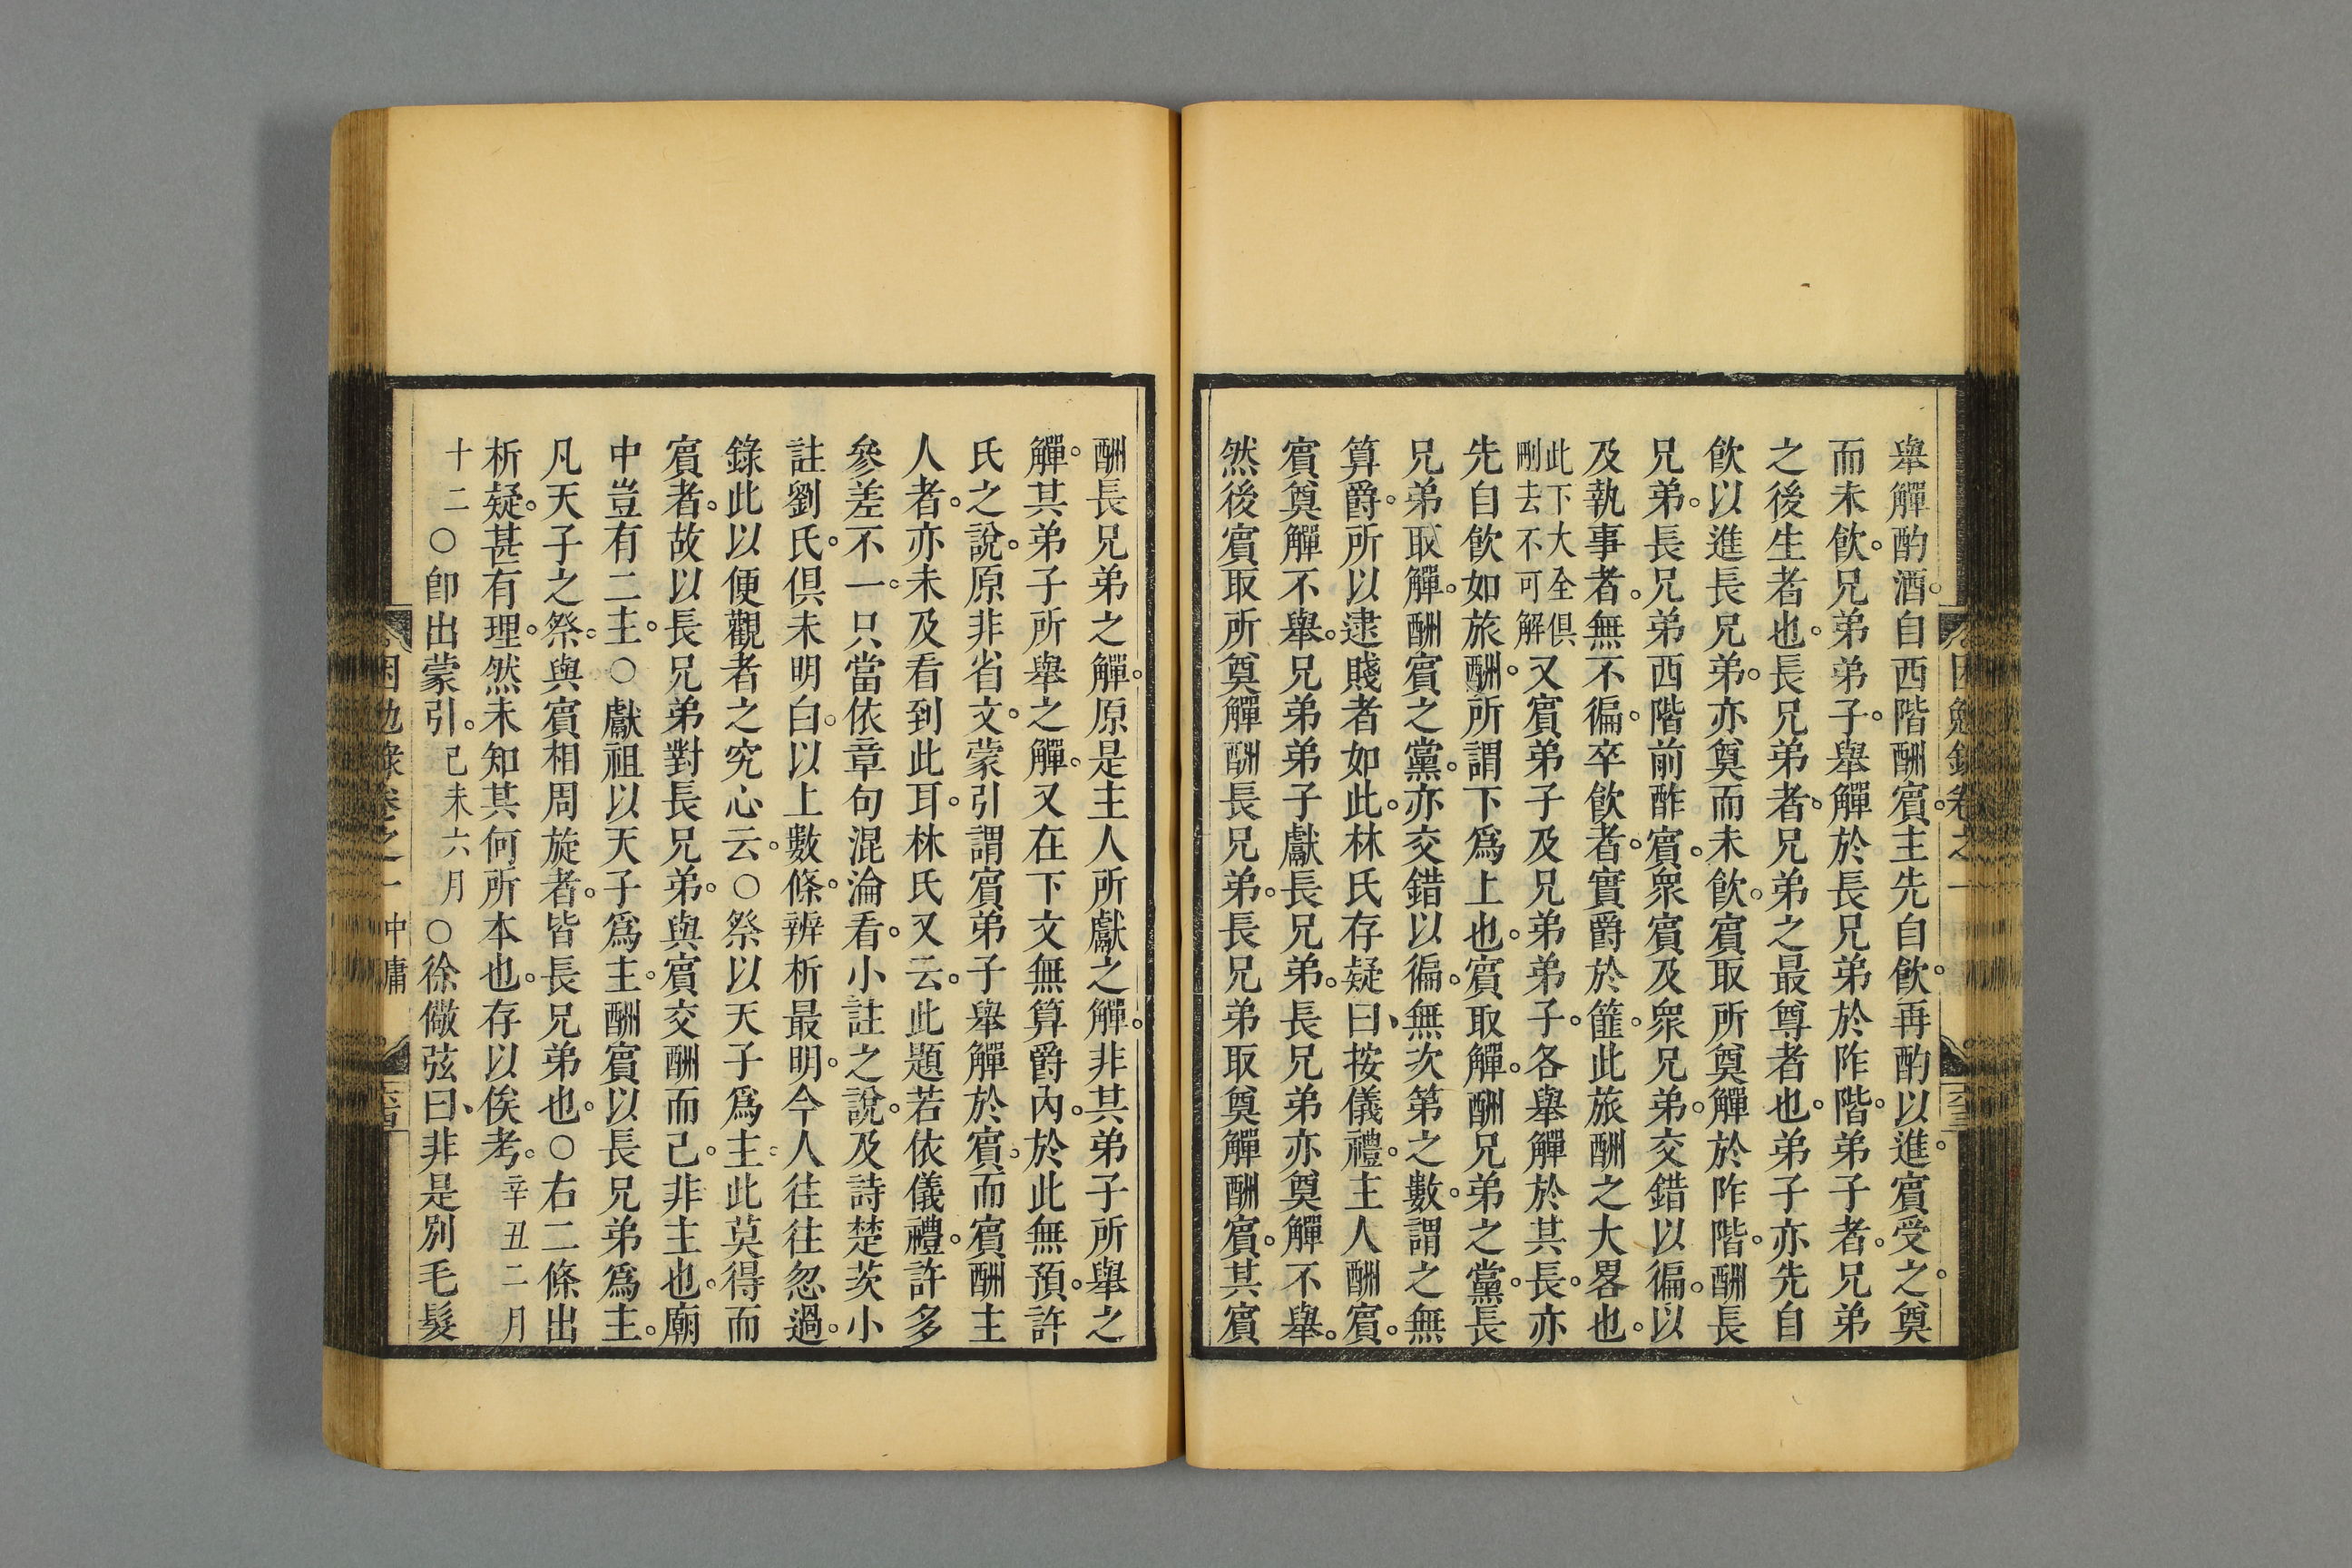 舉觶酌酒。自西階酬賓。主先自飲。再酌以進。賓受之。奠
而未飲。兄弟弟子。舉觶於長兄弟於阼階。弟子者。兄弟
之後生者也。長兄弟者。兄弟之最尊者也。弟子亦先自
飲以進長兄弟。亦奠而未飲。賓取所奠觶於阼階。酬長
兄弟。長兄弟西階前酢賓。衆賓及衆兄弟。交錯以徧。以
及執事者。無不徧。卒飲者。實爵於篚。此旅酬之大畧也。
此下大全俱刪去不可解又賓弟子及兄弟弟子。各舉觶於其長。亦
先自飲如旅酬。所謂下爲上也。賓取觶。酬兄弟之黨。長
兄弟取觶。酬賓之黨。亦交錯以徧。無次第之數。謂之無
算爵。所以逮賤者如此。林氏存疑曰、按儀禮。主人酬賓。
賓奠觶不舉。兄弟弟子獻長兄弟。長兄弟亦奠觶不舉。
然後賓取所奠觶酬長兄弟。長兄弟取奠觶酬賓。其賓
酬長兄弟之觶。原是主人所獻之觶。非其弟子所舉之
觶。其弟子所舉之觶。又在下文無算爵內。於此無預。許
氏之說。原非省文。蒙引謂賓弟子舉觶於賓。而賓酬主
人者。亦未及看到此耳。林氏又云。此題若依儀禮。許多
參差不一。只當依章句混淪看。小註之說。及詩楚茨小
註劉氏。俱未明白。以上數條。辨析最明。今人往往忽過。
錄此以便觀者之究心云。○祭以天子爲主。此莫得而
賓者。故以長兄弟對長兄弟。與賓交酬而已。非主也。廟
中豈有二主。○獻祖以天子爲主。酬賓以長兄弟爲主。
凡天子之祭。與賓相周旋者。皆長兄弟也。○右二條出
析疑。甚有理。然未知其何所本也。存以俟考。辛丑二月
十二○卽出蒙引。己未六月○徐儆弦曰、非是別毛髮
困勉錄卷之一
困勉錄卷之一 中庸